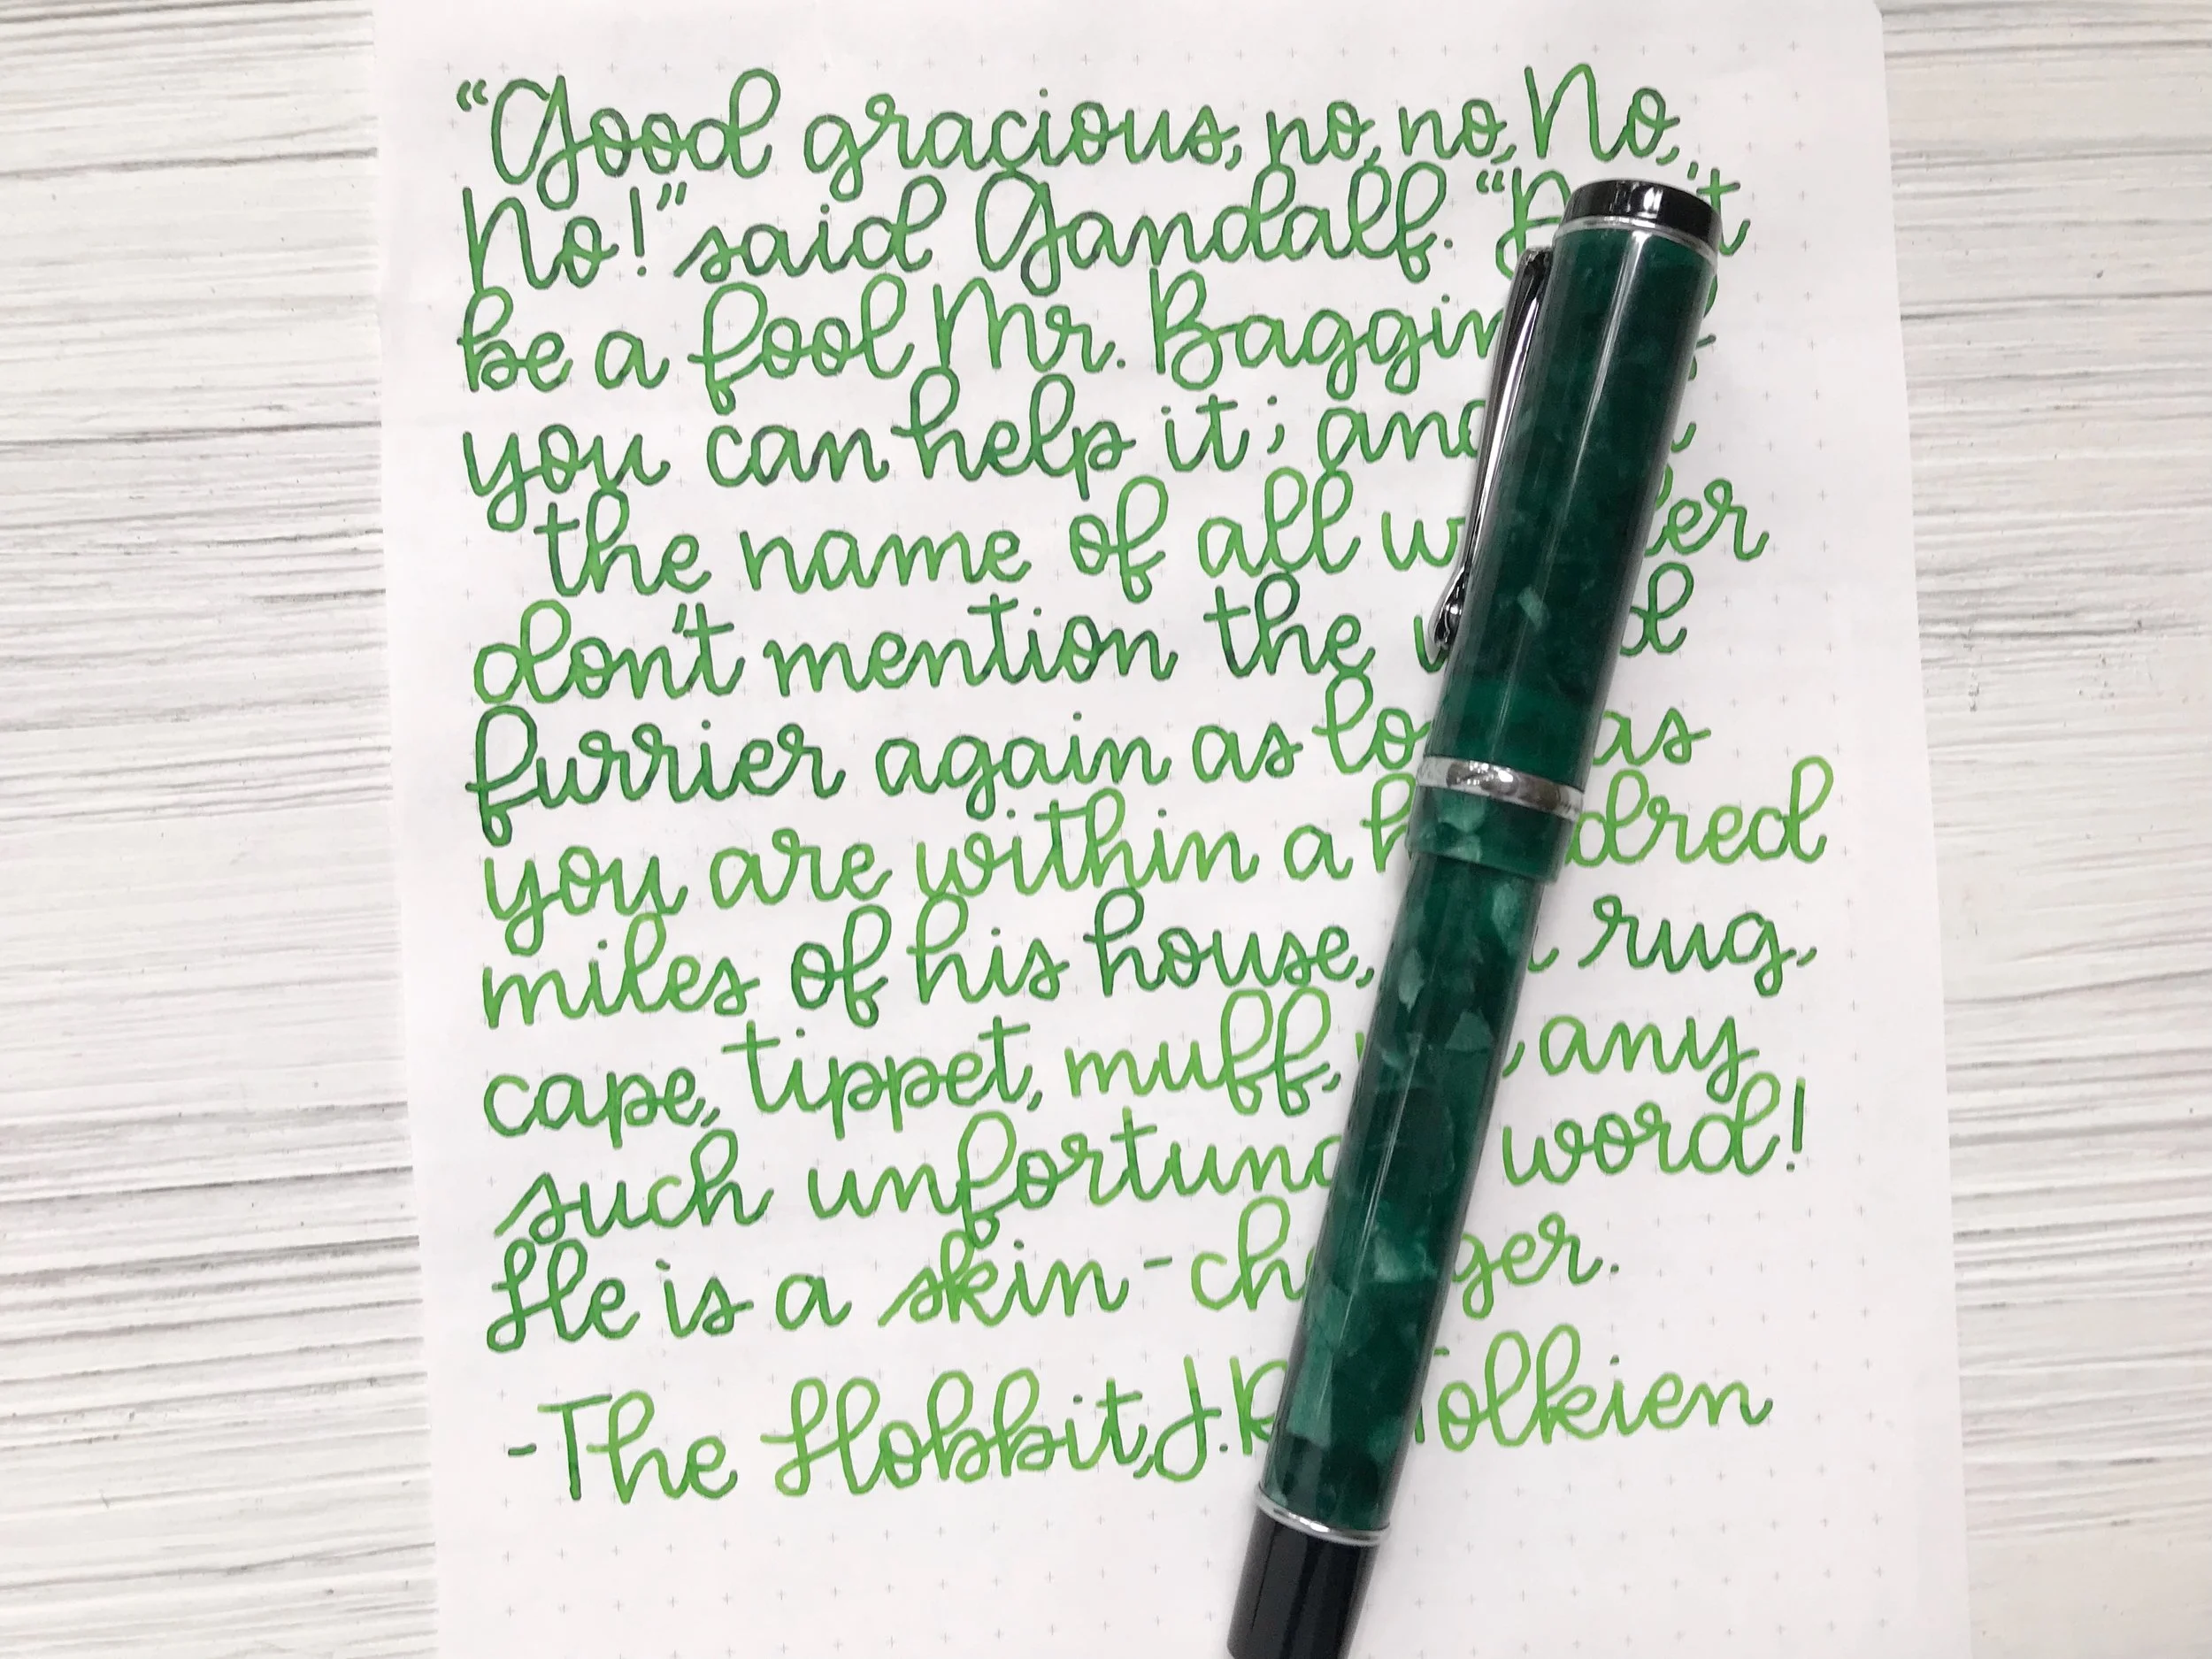 "Good gracious, no, no, No,
No!" said Gandalf. "Don't
be a fool Mr. Baggins if
you can help it; and in
the name of all wonder
don't mention the word
furrier again as long as
you are within a hundred
miles of his house, rug,
cape, tippet, muff, any
such unfortunate word!
He is a skin-changer.
-The Hobbit, J.R. Tolkien